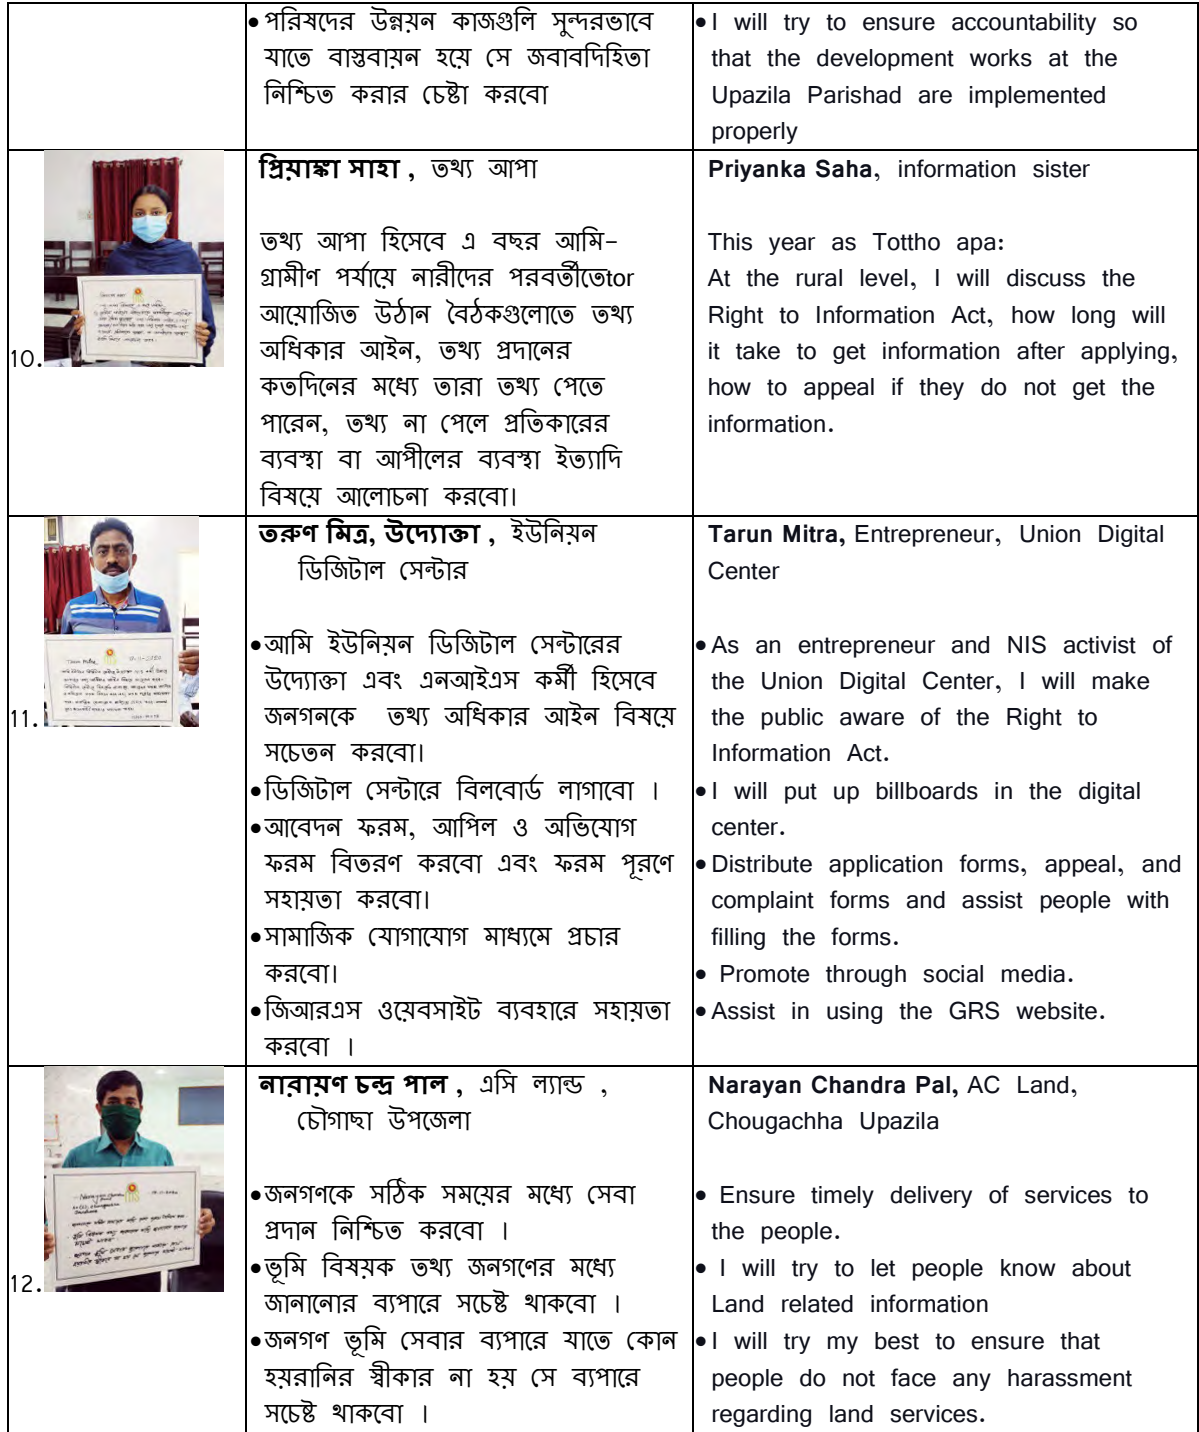 • পরিষদের উন্নয়ন কাজগুলি সুন্দরভাবে
যাতে বাস্তবায়ন হয়ে সে জবাবদিহিতা
নিশ্চিত করার চেষ্টা করবো
• I will try to ensure accountability so
that the development works at the
Upazila Parishad are implemented
properly
10.
প্রিয়াঙ্কা সাহা , তথ্য আপা
তথ্য আপা হিসেবে এ বছর আমি-
গ্রামীণ পর্যায়ে নারীদের পরবর্তীতেtor
আয়োজিত উঠান বৈঠকগুলোতে তথ্য
অধিকার আইন, তথ্য প্রদানের
কতদিনের মধ্যে তারা তথ্য পেতে
পারেন, তথ্য না পেলে প্রতিকারের
ব্যবস্থা বা আপীলের ব্যবস্থা ইত্যাদি
বিষয়ে আলোচনা করবো।
Priyanka Saha, information sister
This year as Tottho apa:
At the rural level, I will discuss the
Right to Information Act, how long will
it take to get information after applying,
how to appeal if they do not get the
information.
11.
তরুণ মিত্র, উদ্যোক্তা , ইউনিয়ন
ডিজিটাল সেন্টার
• আমি ইউনিয়ন ডিজিটাল সেন্টারের
উদ্যোক্তা এবং এনআইএস কর্মী হিসেবে
জনগনকে তথ্য অধিকার আইন বিষয়ে
সচেতন করবো।
• ডিজিটাল সেন্টারে বিলবোর্ড লাগাবো ।
• আবেদন ফরম, আপিল ও অভিযোগ
ফরম বিতরণ করবো এবং ফরম পূরণে
সহায়তা করবো।
• সামাজিক যোগাযোগ মাধ্যমে প্রচার
করবো।
• জিআরএস ওয়েবসাইট ব্যবহারে সহায়তা
করবো ।
Tarun Mitra, Entrepreneur, Union Digital
Center
• As an entrepreneur and NIS activist of
the Union Digital Center, I will make
the public aware of the Right to
Information Act.
• I will put up billboards in the digital
center.
• Distribute application forms, appeal, and
complaint forms and assist people with
filling the forms.
• Promote through social media.
• Assist in using the GRS website.
12.
নারায়ণ চন্দ্র পাল , এসি ল্যান্ড ,
চৌগাছা উপজেলা
• জনগণকে সঠিক সময়ের মধ্যে সেবা
প্রদান নিশ্চিত করবো ।
• ভূমি বিষয়ক তথ্য জনগণের মধ্যে
জানানোর ব্যপারে সচেষ্ট থাকবো ।
• জনগণ ভূমি সেবার ব্যপারে যাতে কোন
হয়রানির স্বীকার না হয় সে ব্যপারে
সচেষ্ট থাকবো ।
Narayan Chandra Pal, AC Land,
Chougachha Upazila
• Ensure timely delivery of services to
the people.
• I will try to let people know about
Land related information
• I will try my best to ensure that
people do not face any harassment
regarding land services.